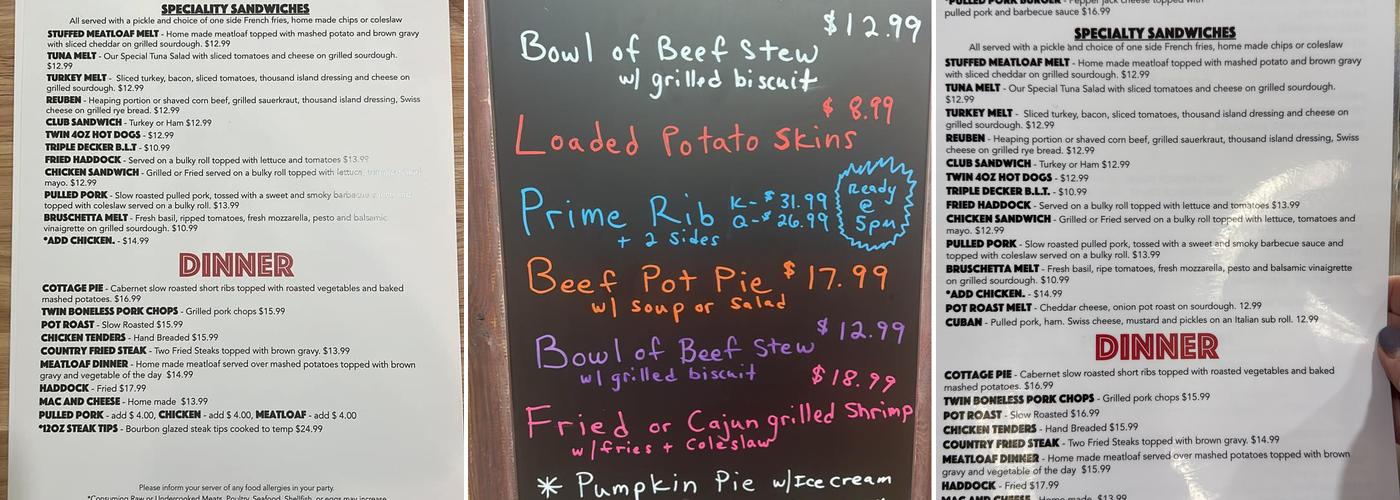 SPECIALTY SANDWICHES
All served with a pickle and choice of one side French fries, home made chips or coleslaw
STUFFED MEATLOAF MELT - Home made meatloaf topped with mashed potato and brown gravy
with sliced cheddar on grilled sourdough. $12.99
TUNA MELT - Our Special Tuna Salad with sliced tomatoes and cheese on grilled sourdough.
$12.99
TURKEY MELT - Sliced turkey, bacon, sliced tomatoes, thousand island dressing and cheese on
grilled sourdough. $12.99
REUBEN - Heaping portion or shaved corn beef, grilled sauerkraut, thousand island dressing, Swiss
cheese on grilled rye bread. $12.99
CLUB SANDWICH - Turkey or Ham $12.99
TWIN 4OZ HOT DOGS - $12.99
TRIPLE DECKER B.L.T - $10.99
FRIED HADDOCK - Served on a bulky roll topped with lettuce and tomatoes $13.99
CHICKEN SANDWICH - Grilled or Fried served on a bulky roll topped with lettuce,
mayo. $12.99
PULLED PORK - Slow roasted pulled pork, tossed with a sweet and smoky barbecue
topped with coleslaw served on a bulky roll. $13.99
BRUSCHETTA MELT - Fresh basil, ripped tomatoes, fresh mozzarella, pesto and balsamic
vinaigrette on grilled sourdough. $10.99
*ADD CHICKEN. - $14.99
DINNER
COTTAGE PIE - Cabernet slow roasted short ribs topped with roasted vegetables and baked
mashed potatoes. $16.99
TWIN BONELESS PORK CHOPS - Grilled pork chops $15.99
POT ROAST - Slow Roasted $15.99
CHICKEN TENDERS - Hand Breaded $15.99
COUNTRY FRIED STEAK - Two Fried Steaks topped with brown gravy. $13.99
MEATLOAF DINNER - Home made meatloaf served over mashed potatoes topped with brown
gravy and vegetable of the day $14.99
HADDOCK - Fried $17.99
MAC AND CHEESE - Home made $13.99
PULLED PORK - add $ 4.00, CHICKEN - add $ 4.00, MEATLOAF - add $ 4.00
*12OZ STEAK TIPS - Bourbon glazed steak tips cooked to temp $24.99
Please inform your server of any food allergies in your party.
*Consuming Raw or Undercooked Meats, Poultry, Seafood, Shellfish, or eggs may increase
$12.99
Bowl of Beef Stew
w/ grilled biscuit
$ 8.99
Loaded Potato Skins
Prime Rib K-$ 31.99
Q-$ 26.99
+ 2 sides
Ready
@
5pm
Beef Pot Pie $17.99
w/ soup or salad
$12.99
Bowl of Beef Stew
w/ grilled biscuit
$18.99
Fried or Cajun grilled Shrimp
w/fries + Coleslaw
* Pumpkin Pie w/Ice cream
*PULLED PORK BURGER - Pepper jack cheese topped with
pulled pork and barbecue sauce $16.99
SPECIALTY SANDWICHES
All served with a pickle and choice of one side French fries, home made chips or coleslaw
STUFFED MEATLOAF MELT - Home made meatloaf topped with mashed potato and brown gravy
with sliced cheddar on grilled sourdough. $12.99
TUNA MELT - Our Special Tuna Salad with sliced tomatoes and cheese on grilled sourdough.
$12.99
TURKEY MELT - Sliced turkey, bacon, sliced tomatoes, thousand island dressing and cheese on
grilled sourdough. $12.99
REUBEN - Heaping portion or shaved corn beef, grilled sauerkraut, thousand island dressing, Swiss
cheese on grilled rye bread. $12.99
CLUB SANDWICH - Turkey or Ham $12.99
TWIN 4OZ HOT DOGS - $12.99
TRIPLE DECKER B.L.T. - $10.99
FRIED HADDOCK - Served on a bulky roll topped with lettuce and tomatoes $13.99
CHICKEN SANDWICH - Grilled or Fried served on a bulky roll topped with lettuce, tomatoes and
mayo. $12.99
PULLED PORK - Slow roasted pulled pork, tossed with a sweet and smoky barbecue sauce and
topped with coleslaw served on a bulky roll. $13.99
BRUSCHETTA MELT - Fresh basil, ripe tomatoes, fresh mozzarella, pesto and balsamic vinaigrette
on grilled sourdough. $10.99
*ADD CHICKEN. - $14.99
POT ROAST MELT - Cheddar cheese, onion pot roast on sourdough. 12.99
CUBAN - Pulled pork, ham. Swiss cheese, mustard and pickles on an Italian sub roll. 12.99
DINNER
COTTAGE PIE - Cabernet slow roasted short ribs topped with roasted vegetables and baked
mashed potatoes. $16.99
TWIN BONELESS PORK CHOPS - Grilled pork chops $15.99
POT ROAST - Slow Roasted $16.99
CHICKEN TENDERS - Hand Breaded $15.99
COUNTRY FRIED STEAK - Two Fried Steaks topped with brown gravy. $14.99
MEATLOAF DINNER - Home made meatloaf served over mashed potatoes topped with brown
gravy and vegetable of the day $15.99
HADDOCK - Fried $17.99
MAC AND CHEESE - Home made $13.99